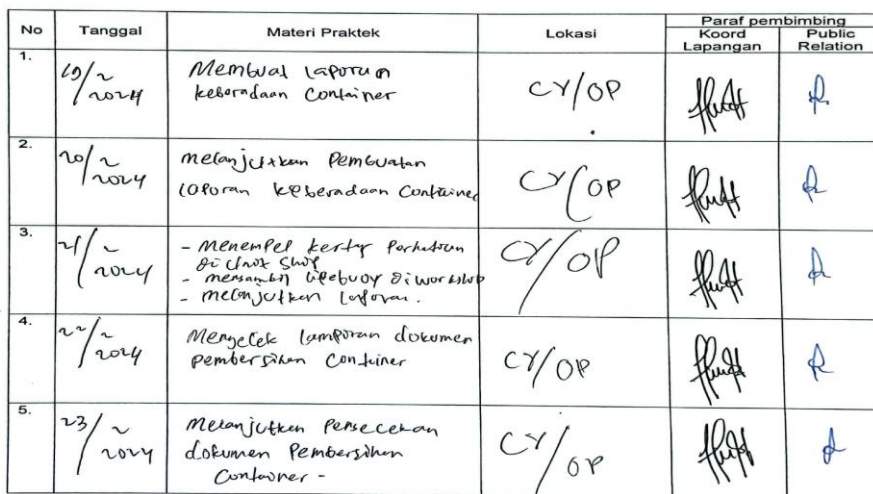 No Tanggal Materi Praktek Lokasi Paraf pembimbing
Koord Lapangan Public Relation
1. 19/2 2024 Membuat laporan CY/OP
keberadaan Container
2. 20/2 2024 melanjutkan Pembuatan CY/OP
laporan keberadaan Container
3. 21/2 2024 - Menempel kertas Perhatian CY/OP
di
- mengambil lifebuoy di workshop
- melanjutkan laporan.
4. 22/2 2024 Mengecek lampiran dokumen CY/OP
pembersihan Container
5. 23/2 2024 Melanjutkan Pengecekan CY/OP
dokumen Pembersihan
Container -